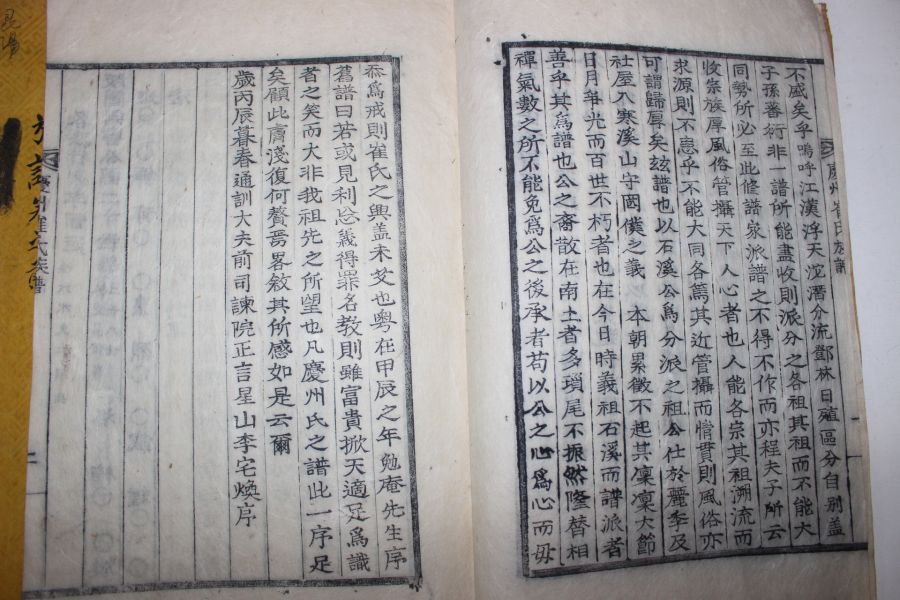 慶州崔氏族譜
不盛矣乎嗚呼江漢浮天沱潛分流鄧林日殖區分自別盖
子孫蕃衍非一譜所能盡收則派分之各祖其祖而不能大
同勢所必至此修譜家派譜之不得不作而亦程夫子所云
收崇族厚風俗管攝天下人心者也人能各宗其祖溯流而
求源則不患乎不能大同各篤其近管攝而情賁則風俗亦
可謂歸厚矣玆譜也以石溪公爲分派之祖公仕於麗季及
社屋入寒溪山守罔僕之義 本朝累徵不起其凜凜大節
日月爭光而百世不朽者也在今日時義祖石溪而譜派者
善乎其爲譜也公之裔散在南土者多瑣尾不振然隆替相
禪氣數之所不能免爲公之後承者苟以公之心爲心而毋
忝爲戒則崔氏之興盖未艾也粤在甲辰之年勉庵先生序
舊譜曰若或見利忘義得罪名教則雖富貴掀天適足爲識
者之笑而大非我祖先之所望也凡慶州氏之譜此一序足
矣顧此膚淺復何贅焉畧敘其所感如是云爾
歲丙辰暮春通訓大夫前司諫院正言星山李宅煥序
慶州崔氏族譜